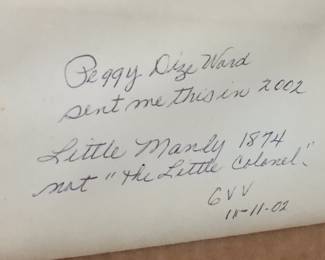 Peggy Dize Ward
sent me this in 2002
Little Mandy 1874
not "The Little Colonel."
GVV
11-11-02